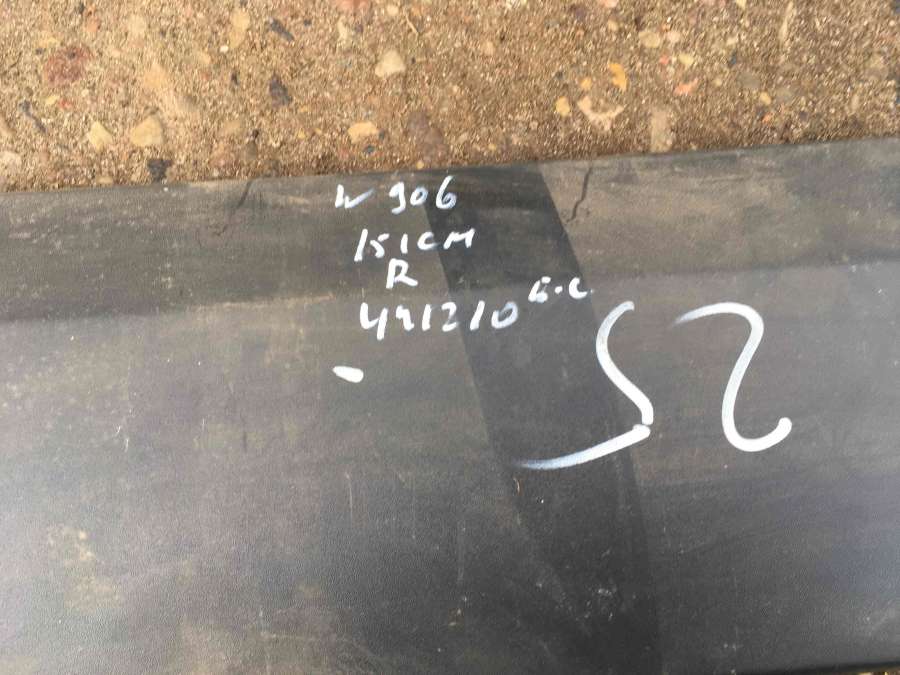 W 906
151CM
R
491210 Б.С.
52